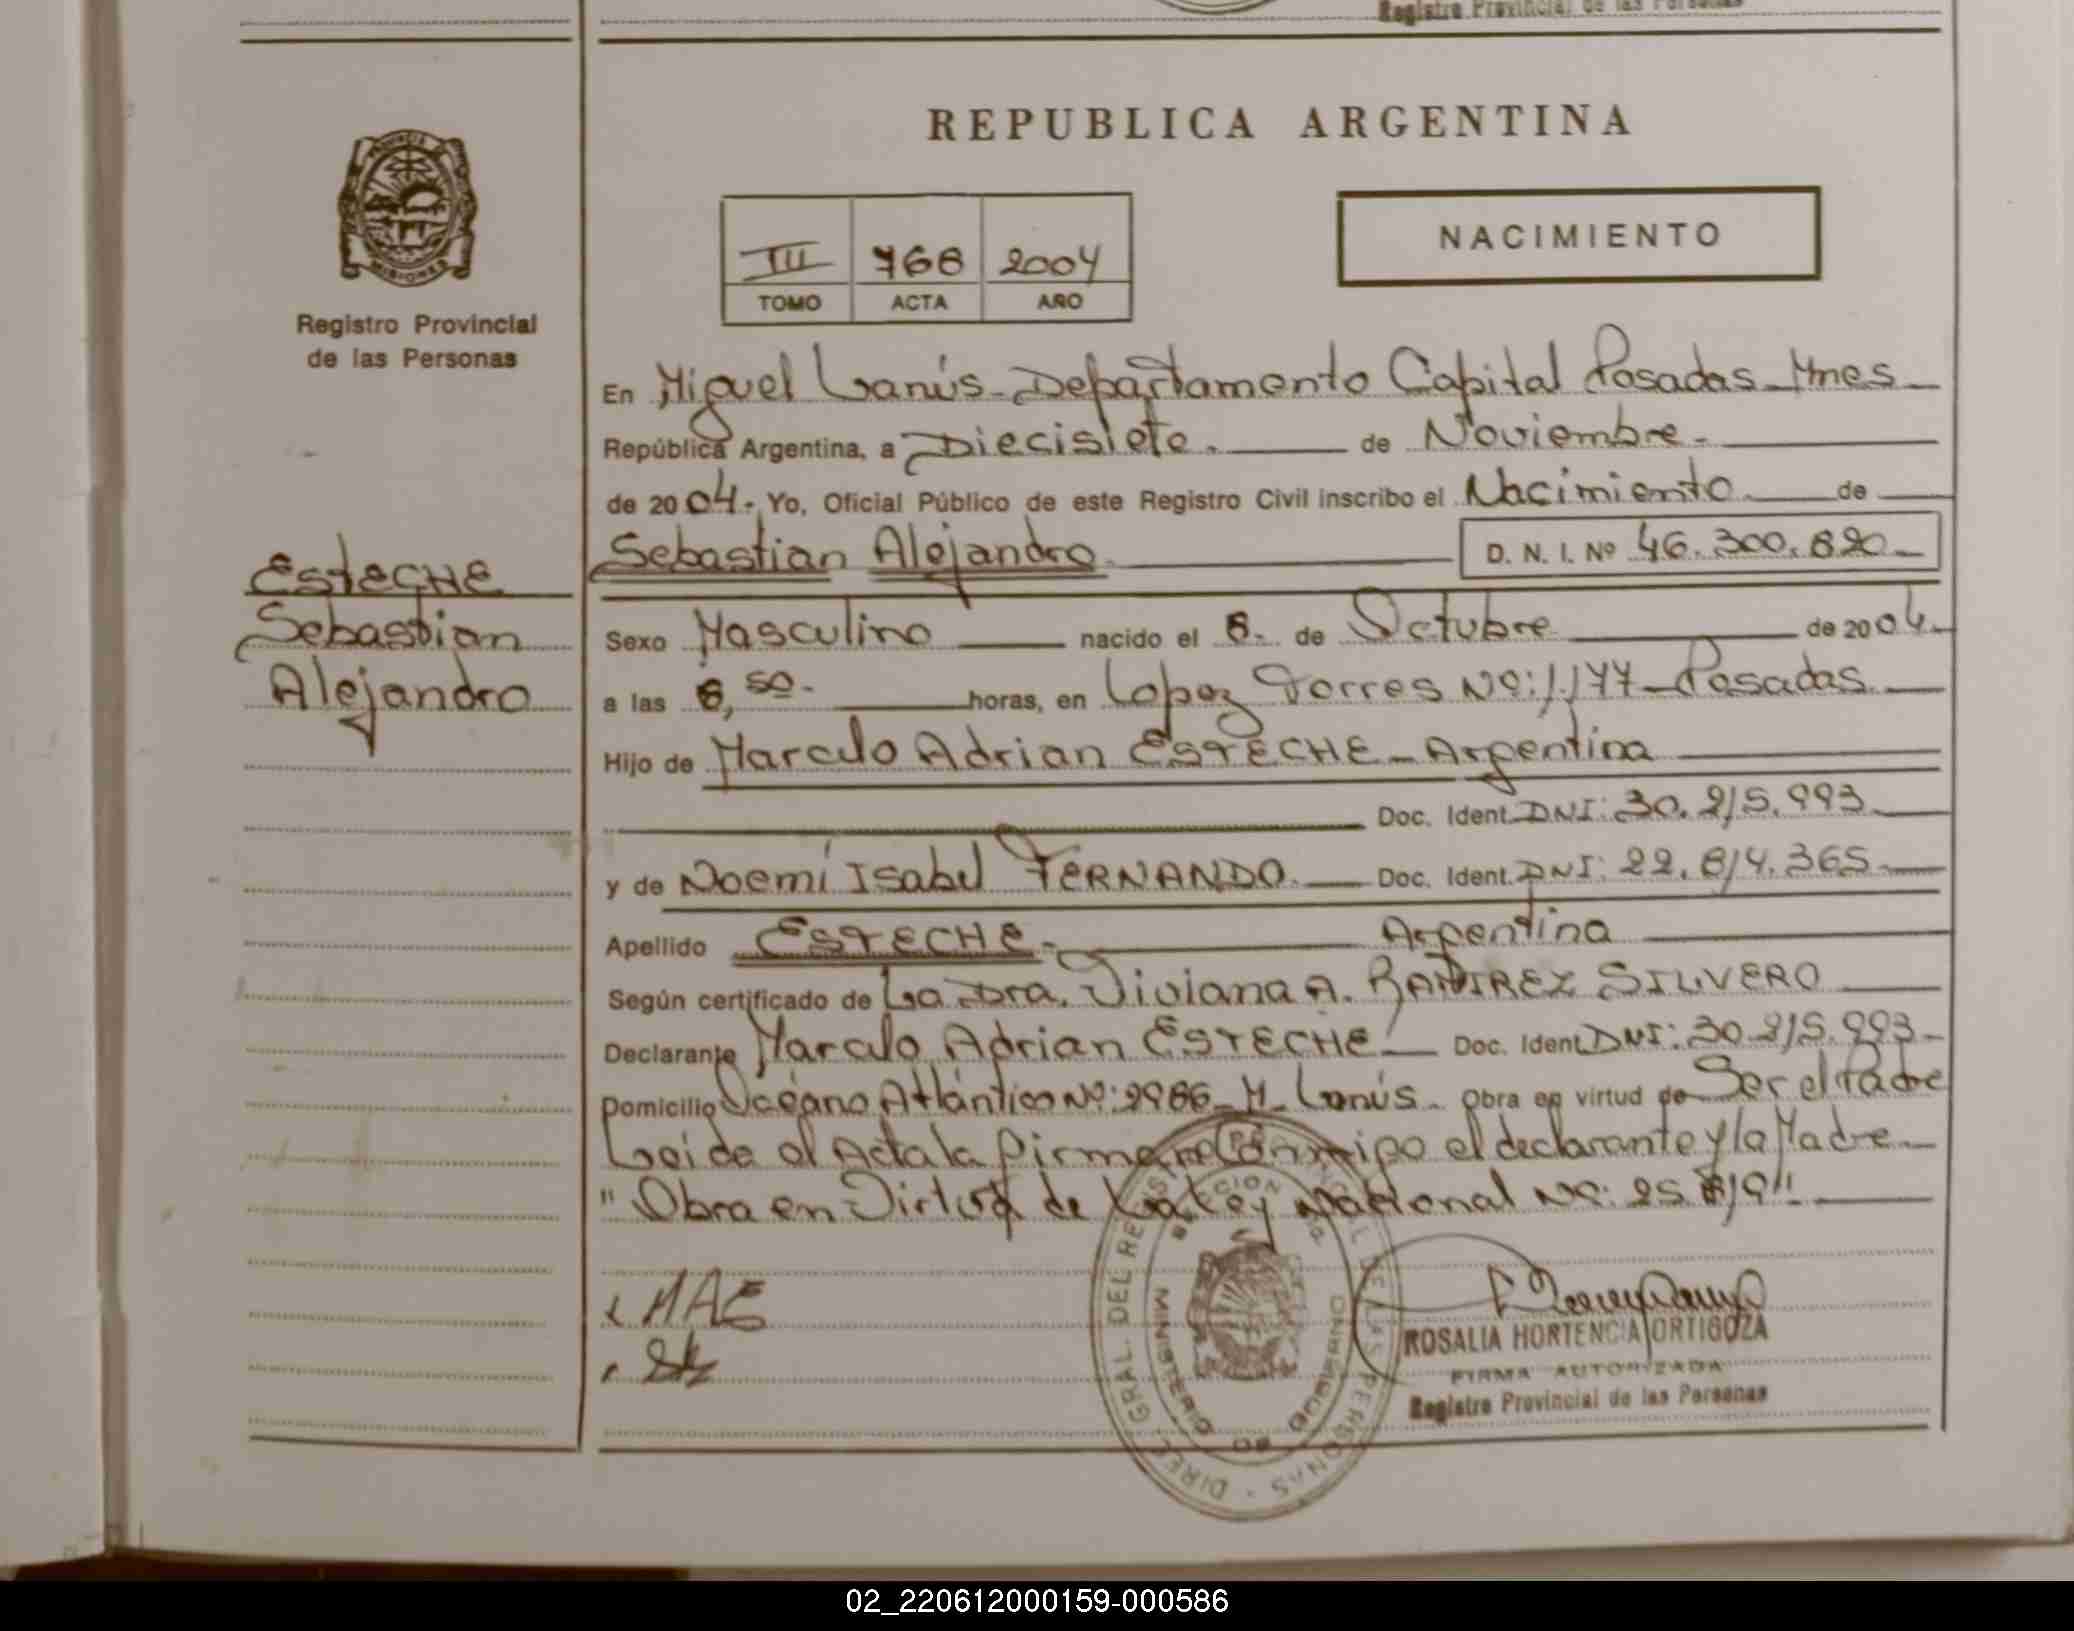 Registro Provincial de las Personas
REPUBLICA ARGENTINA
PROVINCIA DE
MISIONES
Registro Provincial
de las Personas
III 768 2004
TOMO ACTA AÑO
NACIMIENTO
En Miguel Lanús - Departamento Capital Posadas - Mnes
República Argentina, a Diecisiete. de Noviembre.
de 2004. Yo, Oficial Público de este Registro Civil inscribo el Nacimiento de
Sebastian Alejandro D. N. I. Nº 46.300.820
ESTECHE
Sebastian
Alejandro
Sexo Masculino nacido el 8. de Octubre de 2004.
a las 8,50. horas, en Lopez Torres Nº: 1.177 - Posadas.
Hijo de Marcelo Adrian ESTECHE - Argentina
Doc. Ident. DNI: 30.215.993
y de Noemí Isabel FERNANDO. Doc. Ident. DNI: 22.814.365.
Apellido ESTECHE. Argentina
Según certificado de La Dra. Viviana A. RAMIREZ SILVERO
Declarante Marcelo Adrian ESTECHE Doc. Ident. DNI: 30.215.993
Domicilio Océano Atlántico Nº: 2986 - M. Lanús. Obra en virtud de Ser el Padre
Leida el Acta la firman Conmigo el declarante y la Madre
" Obra en Virtud de La Ley Nacional Nº: 25.819"
DIREC. GRAL. DEL REGISTRO PROVINCIAL DE LAS PERSONAS
MINISTERIO DE GOBIERNO
MAE
ROSALIA HORTENCIA ORTIGOZA
FIRMA AUTORIZADA
Registro Provincial de las Personas
02_220612000159-000586